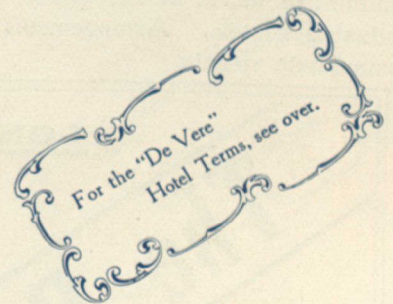 For the "De Vere"
Hotel Terms, see over.